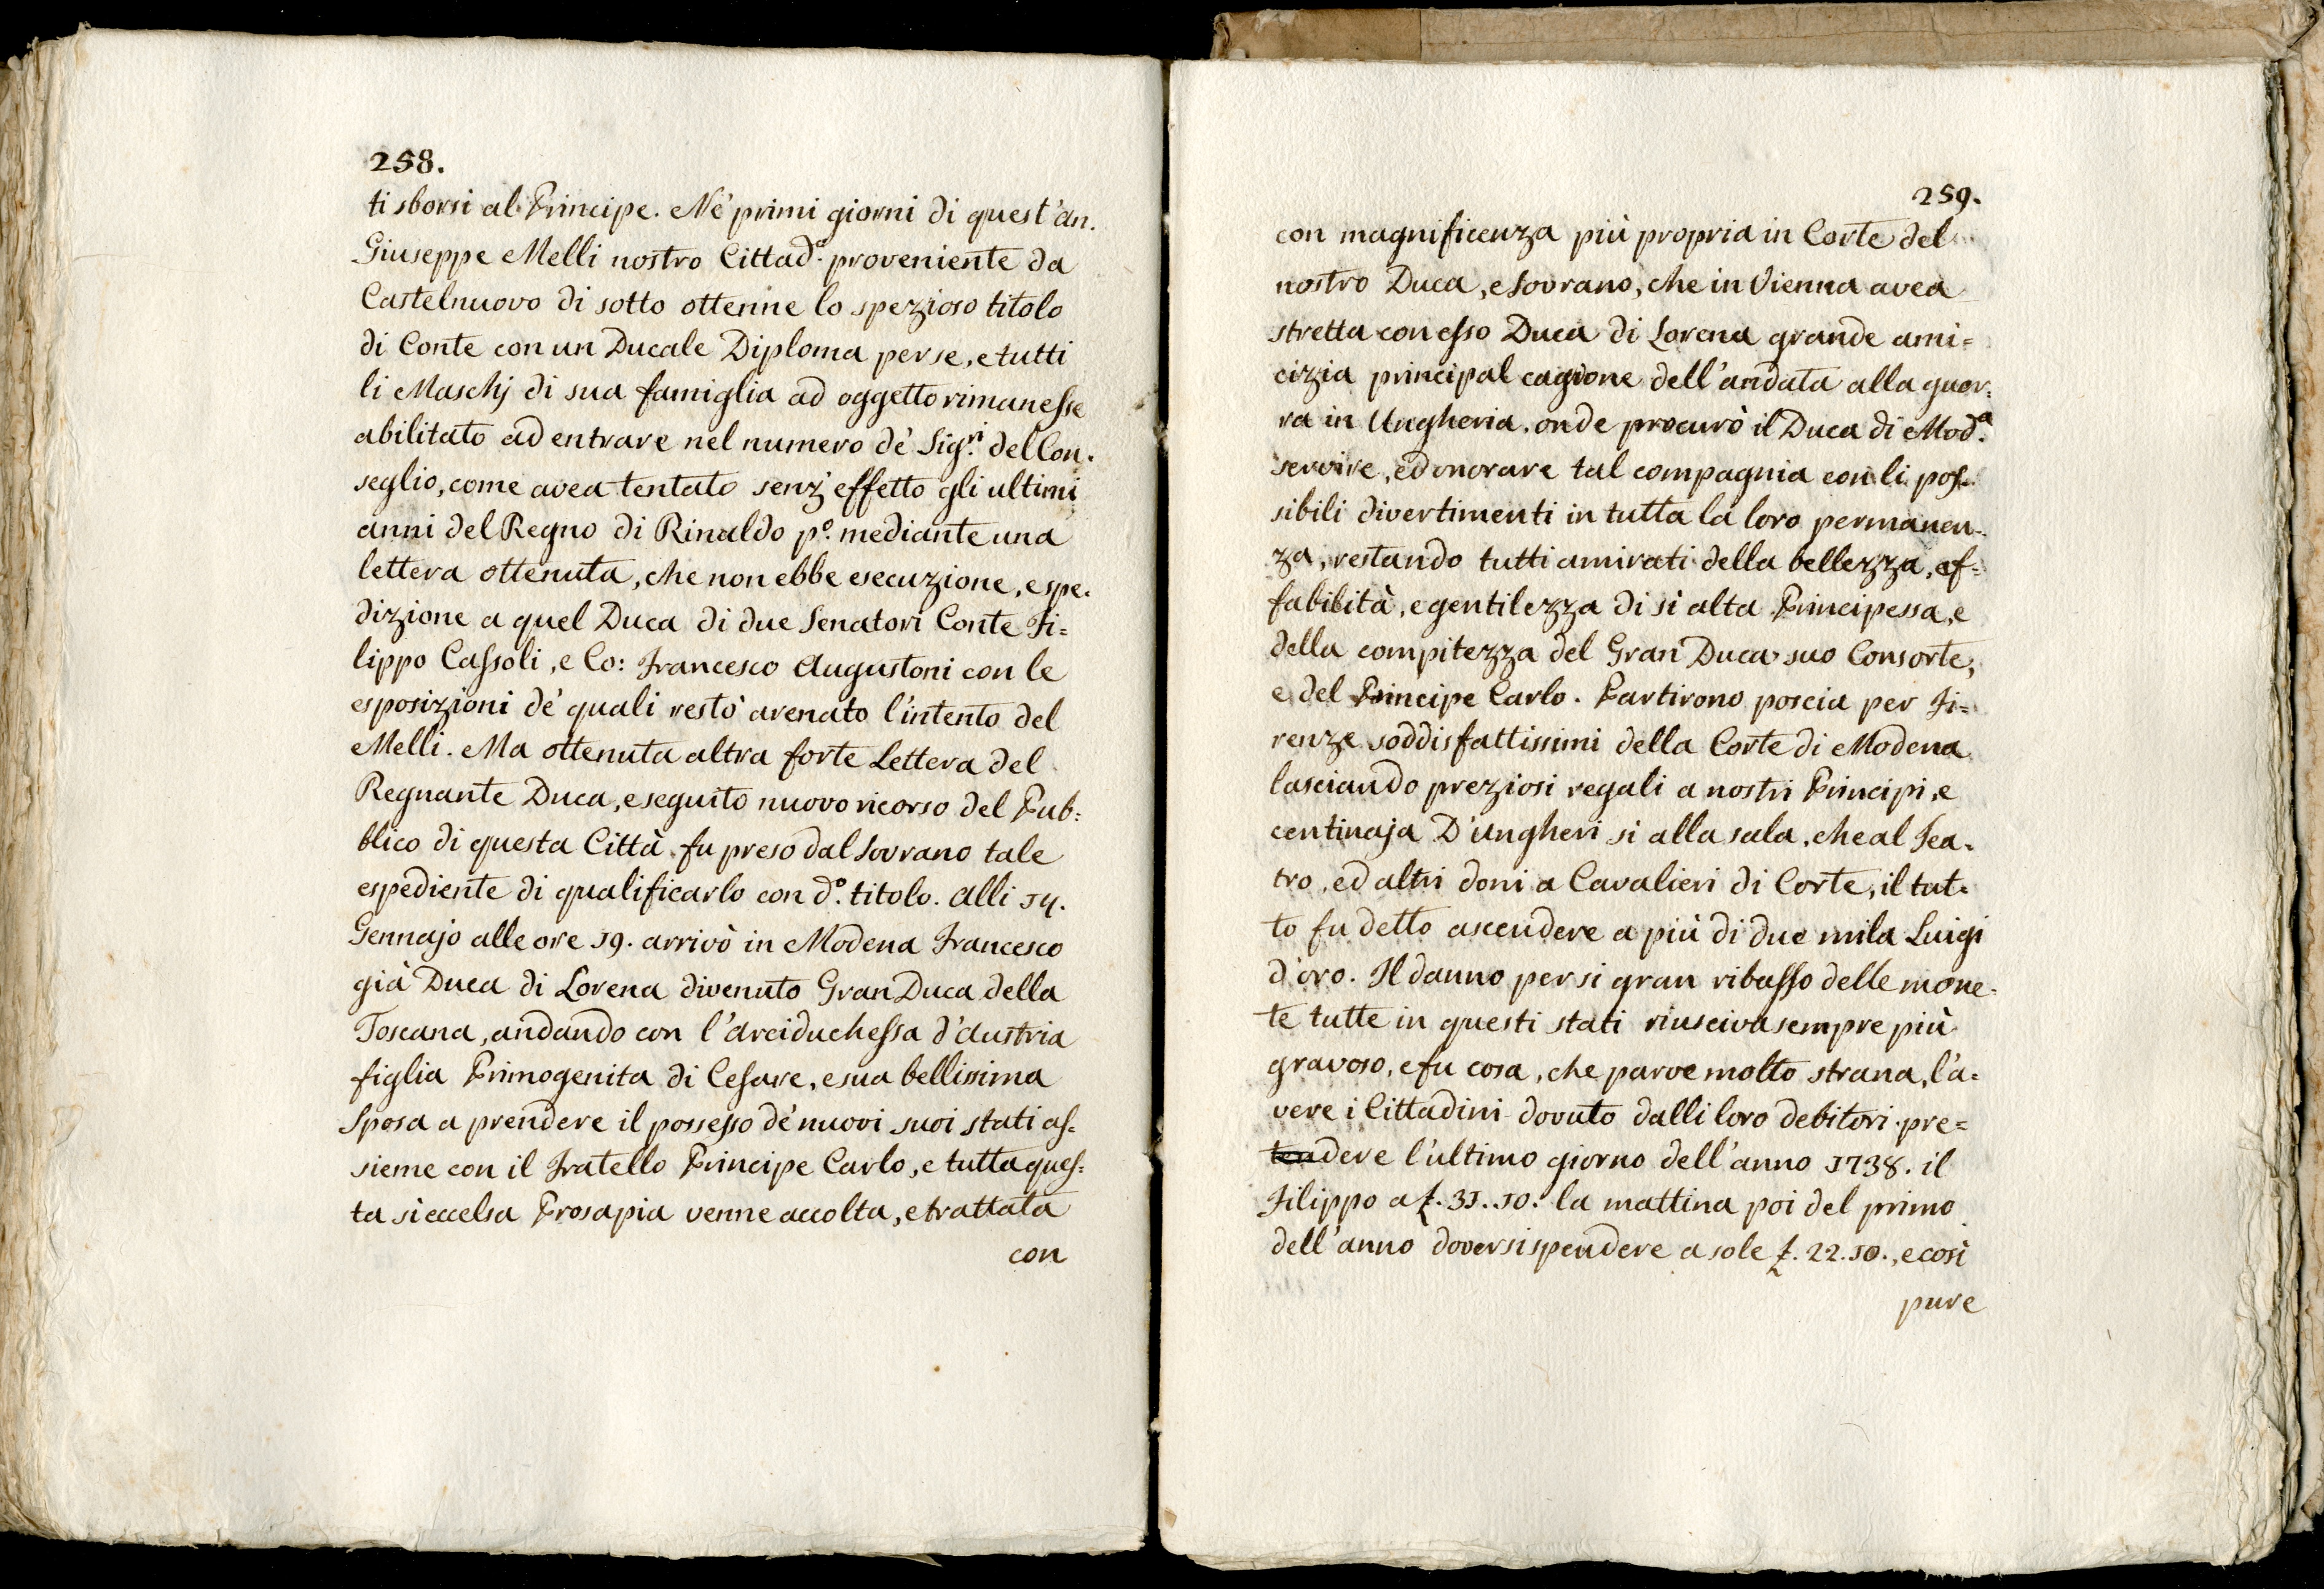 258.
ti sborsi al Principe. Ne' primi giorni di quest'an.
Giuseppe Melli nostro Cittad.º proveniente da
Castelnuovo di sotto ottenne lo spezioso titolo
di Conte con un Ducale Diploma per se, e tutti
li Maschj di sua famiglia ad oggetto rimanesse
abilitato ad entrare nel numero de' Sig.ri del Con.
seglio, come avea tentato senz' effetto gli ultimi
anni del Regno di Rinaldo p.º mediante una
lettera ottenuta, che non ebbe esecuzione, e spe.
dizione a quel Duca di due Senatori Conte Fi=
lippo Cassoli, e Co: Francesco Augustoni con le
esposizioni de' quali restò arenato l'intento del
Melli. Ma ottenuta altra forte Lettera del
Regnante Duca, e seguito nuovo ricorso del Pub=
blico di questa Città fu preso dal Sovrano tale
espediente di qualificarlo con d.º titolo. Alli 14.
Gennajo alle ore 19. arrivò in Modena Francesco
già Duca di Lorena divenuto Gran Duca della
Toscana, andando con l'Arciduchessa d'Austria
figlia Primogenita di Cesare, e sua bellissima
Sposa a prendere il possesso de' nuovi suoi stati as=
sieme con il Fratello Principe Carlo, e tutta ques=
ta sì eccelsa Prosapia venne accolta, e trattata
con
259.
con magnificenza più propria in Corte del
nostro Duca, e Sovrano, che in Vienna avea
stretta con esso Duca di Lorena grande ami=
cizia principal cagione dell'andata alla guer=
ra in Ungheria, onde procurò il Duca di Mod.a
servire, ed onorare tal compagnia con li pos=
sibili divertimenti in tutta la loro permanen=
za, restando tutti amirati della bellezza, af=
fabilità, e gentilezza di sì alta Principessa, e
della compitezza del Gran Duca suo Consorte,
e del Principe Carlo. Partirono poscia per Fi=
renze soddisfattissimi della Corte di Modena
lasciando preziosi regali a nostri Principi, e
centinaja D'Ungheri sì alla sala, che al Tea=
tro, ed altri doni a Cavalieri di Corte, il tut=
to fu detto ascendere a più di due mila Luigi
d'oro. Il danno per sì gran ribasso delle mone=
te tutte in questi stati riusciva sempre più
gravoso, e fu cosa, che parve molto strana, l'a=
vere i Cittadini dovuto dalli loro debitori pre=
tendere l'ultimo giorno dell'anno 1738. il
Filippo a £. 31. 10. la mattina poi del primo
dell'anno doversi spendere a sole £. 22. 10., e così
pure